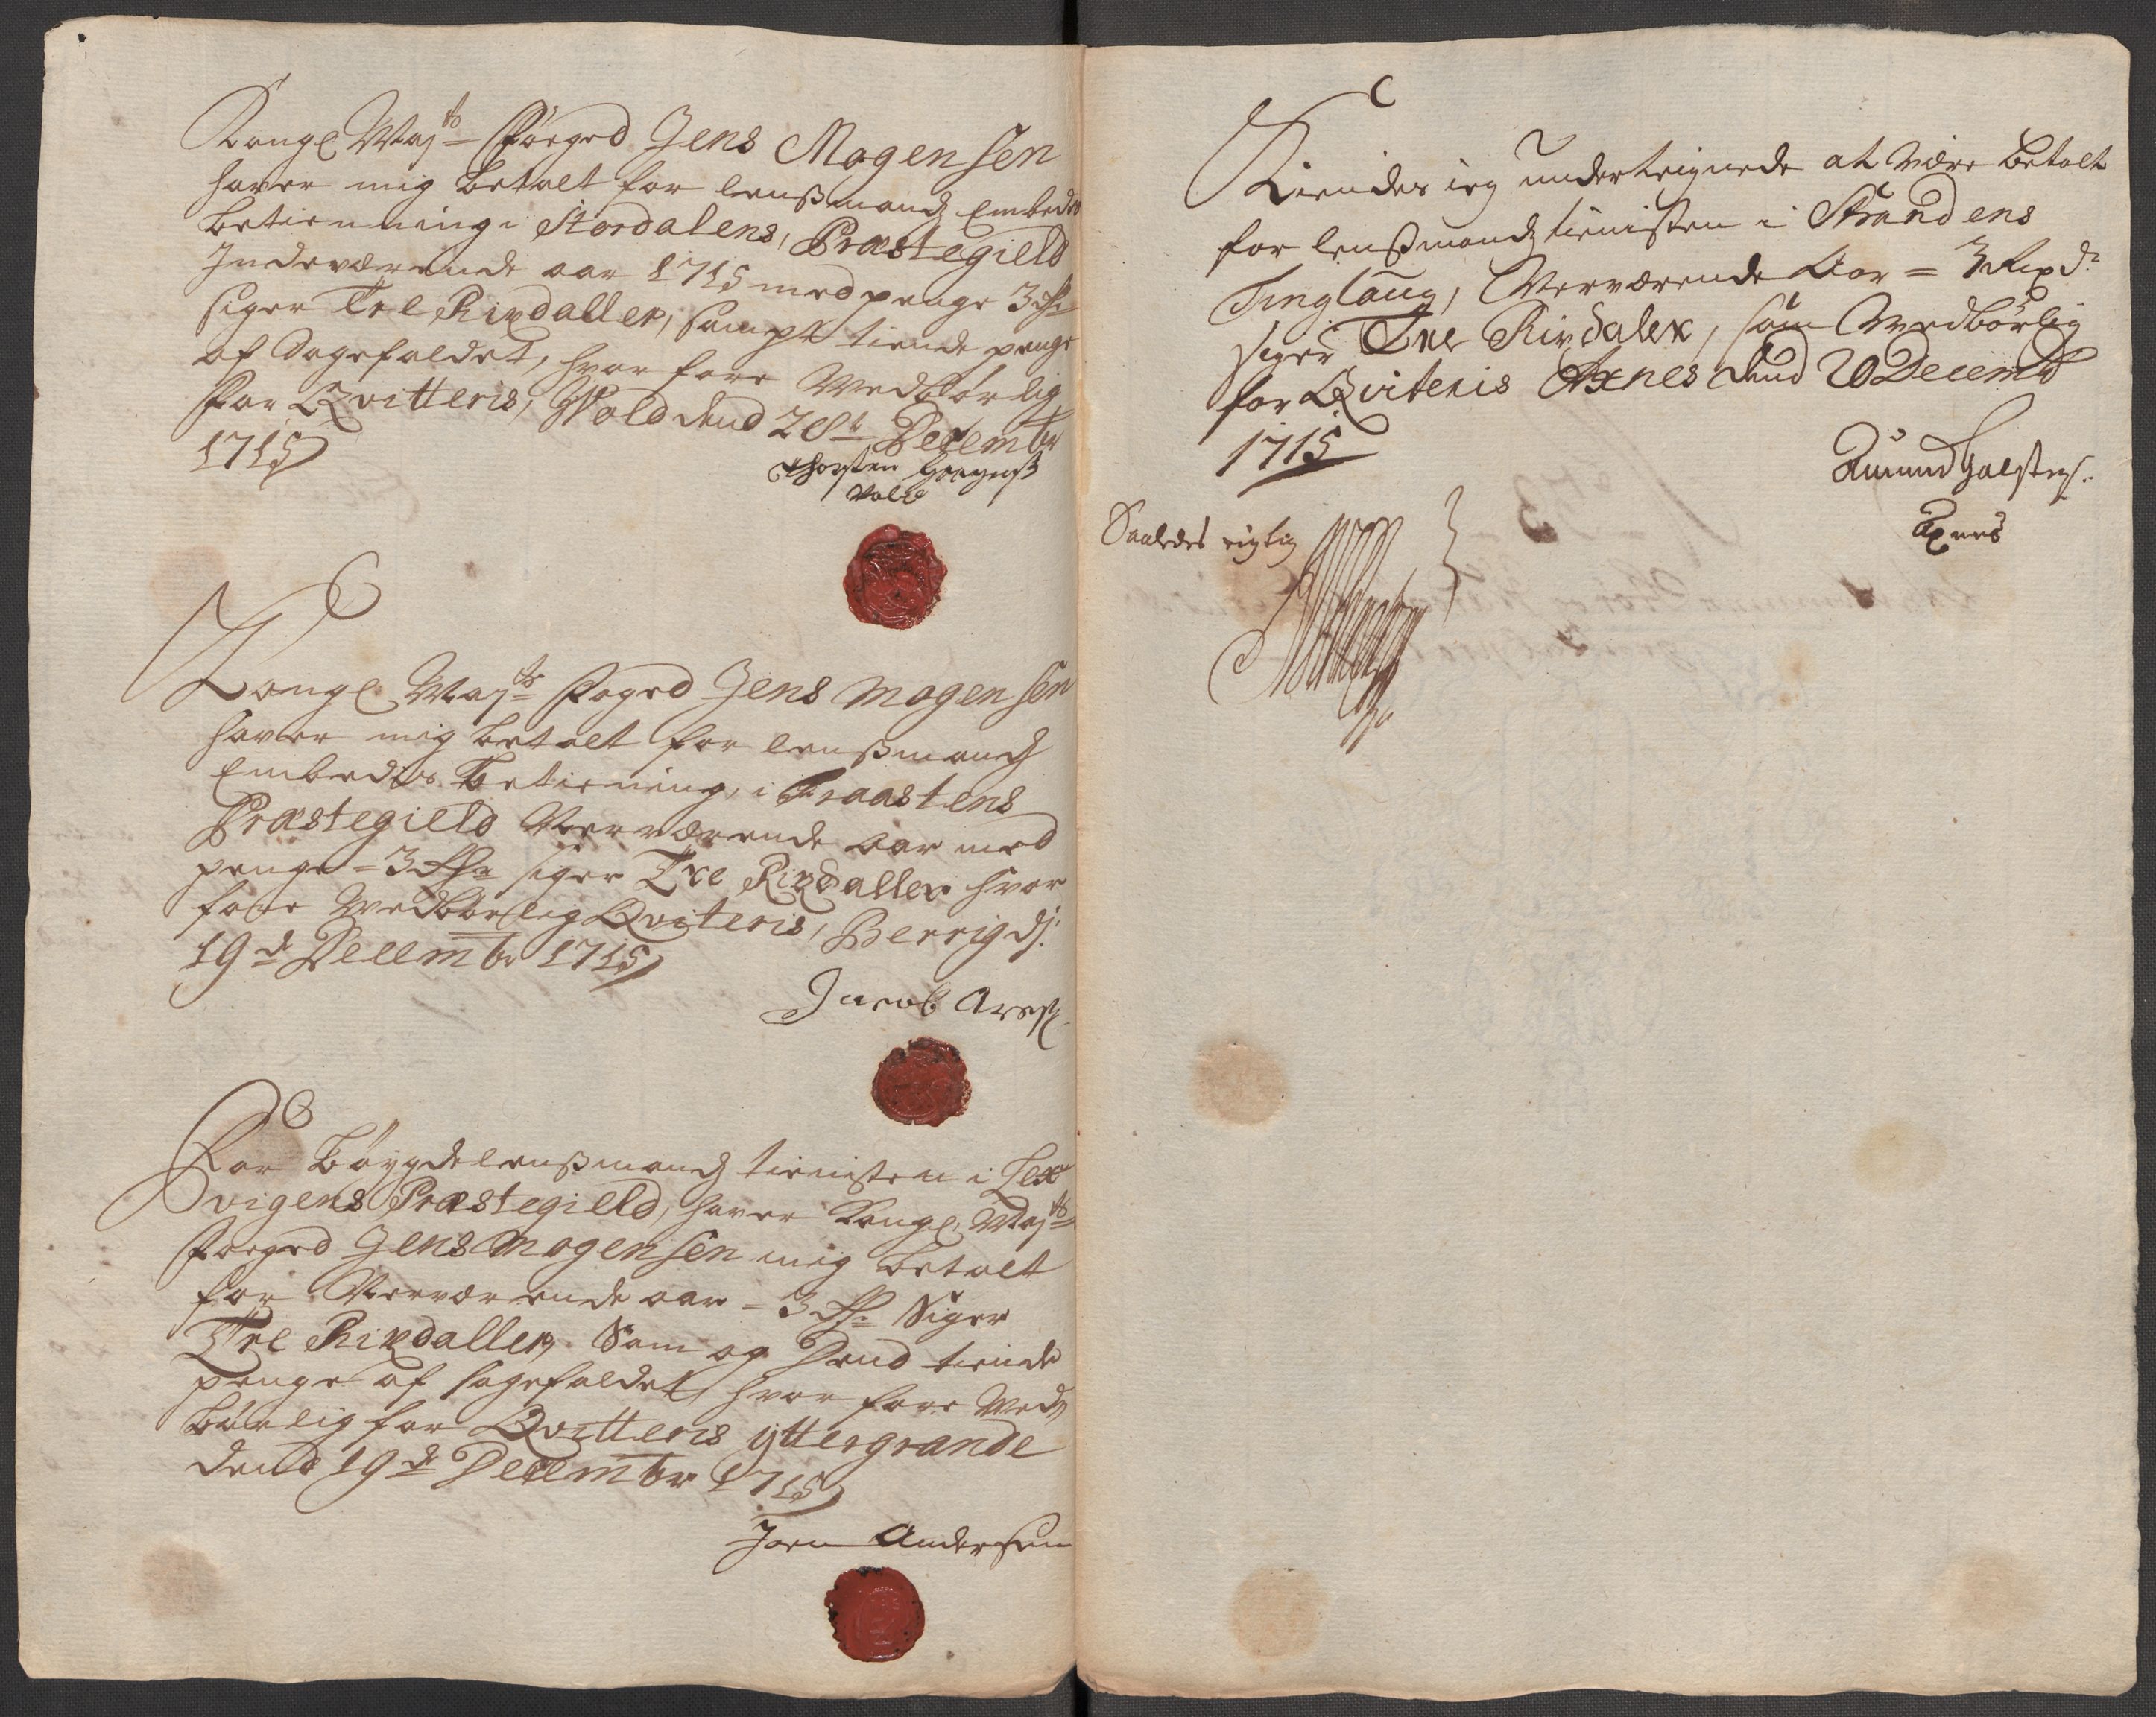 Kongl Mayts Foeged Jens Mogensen
haver mig betalt for lensmands Embedes
betienning i Stordalens, Præstegield
Indeværende aar 1715 med penge 3 Rdr
siger Tre Rixdaller, sampt tiende penge
af Sagefaldet, hvor fore Wedbørlig
for Qvitteris, Wold dend 28de Decembr
1715
Thorsten
Vold
Kongl Mayts Foged Jens Mogensen
haver mig betalt for lensmands
Embedes betiening, i Fraastens
Præstegield Nerværende aar med
penge = 3 Rdr siger Tre Rixdaller hvor
fore Wedbørlig Qviteris, Berrig d:
19de Decembr 1715
Jacob Ares.
For bøygdelensmands tienisten i Lex
vigens Præstegield, haver Kongl. Mayts
Foeged Jens Mogensen mig betalt
for Nerværende aar = 3 Rdr Siger
Tre Rixdaller. Som og dend tiende
penge af sagefaldet, hvor fore Wed
børlig for Qvitteris yttergrande
dend 19de Decembr 1715
Joen Andersen
Kiendes ieg underteignede at være betalt
for lensmands tienisten i Strandens
Tinglaug, Nerværende Aar = 3 Rixd:
siger Tre Rixdaler, som Wedbørlig
for Qviteris Axnes dend 20 Decembr
1715
Amund Halstens.
Axnes
Saaledes rigtig